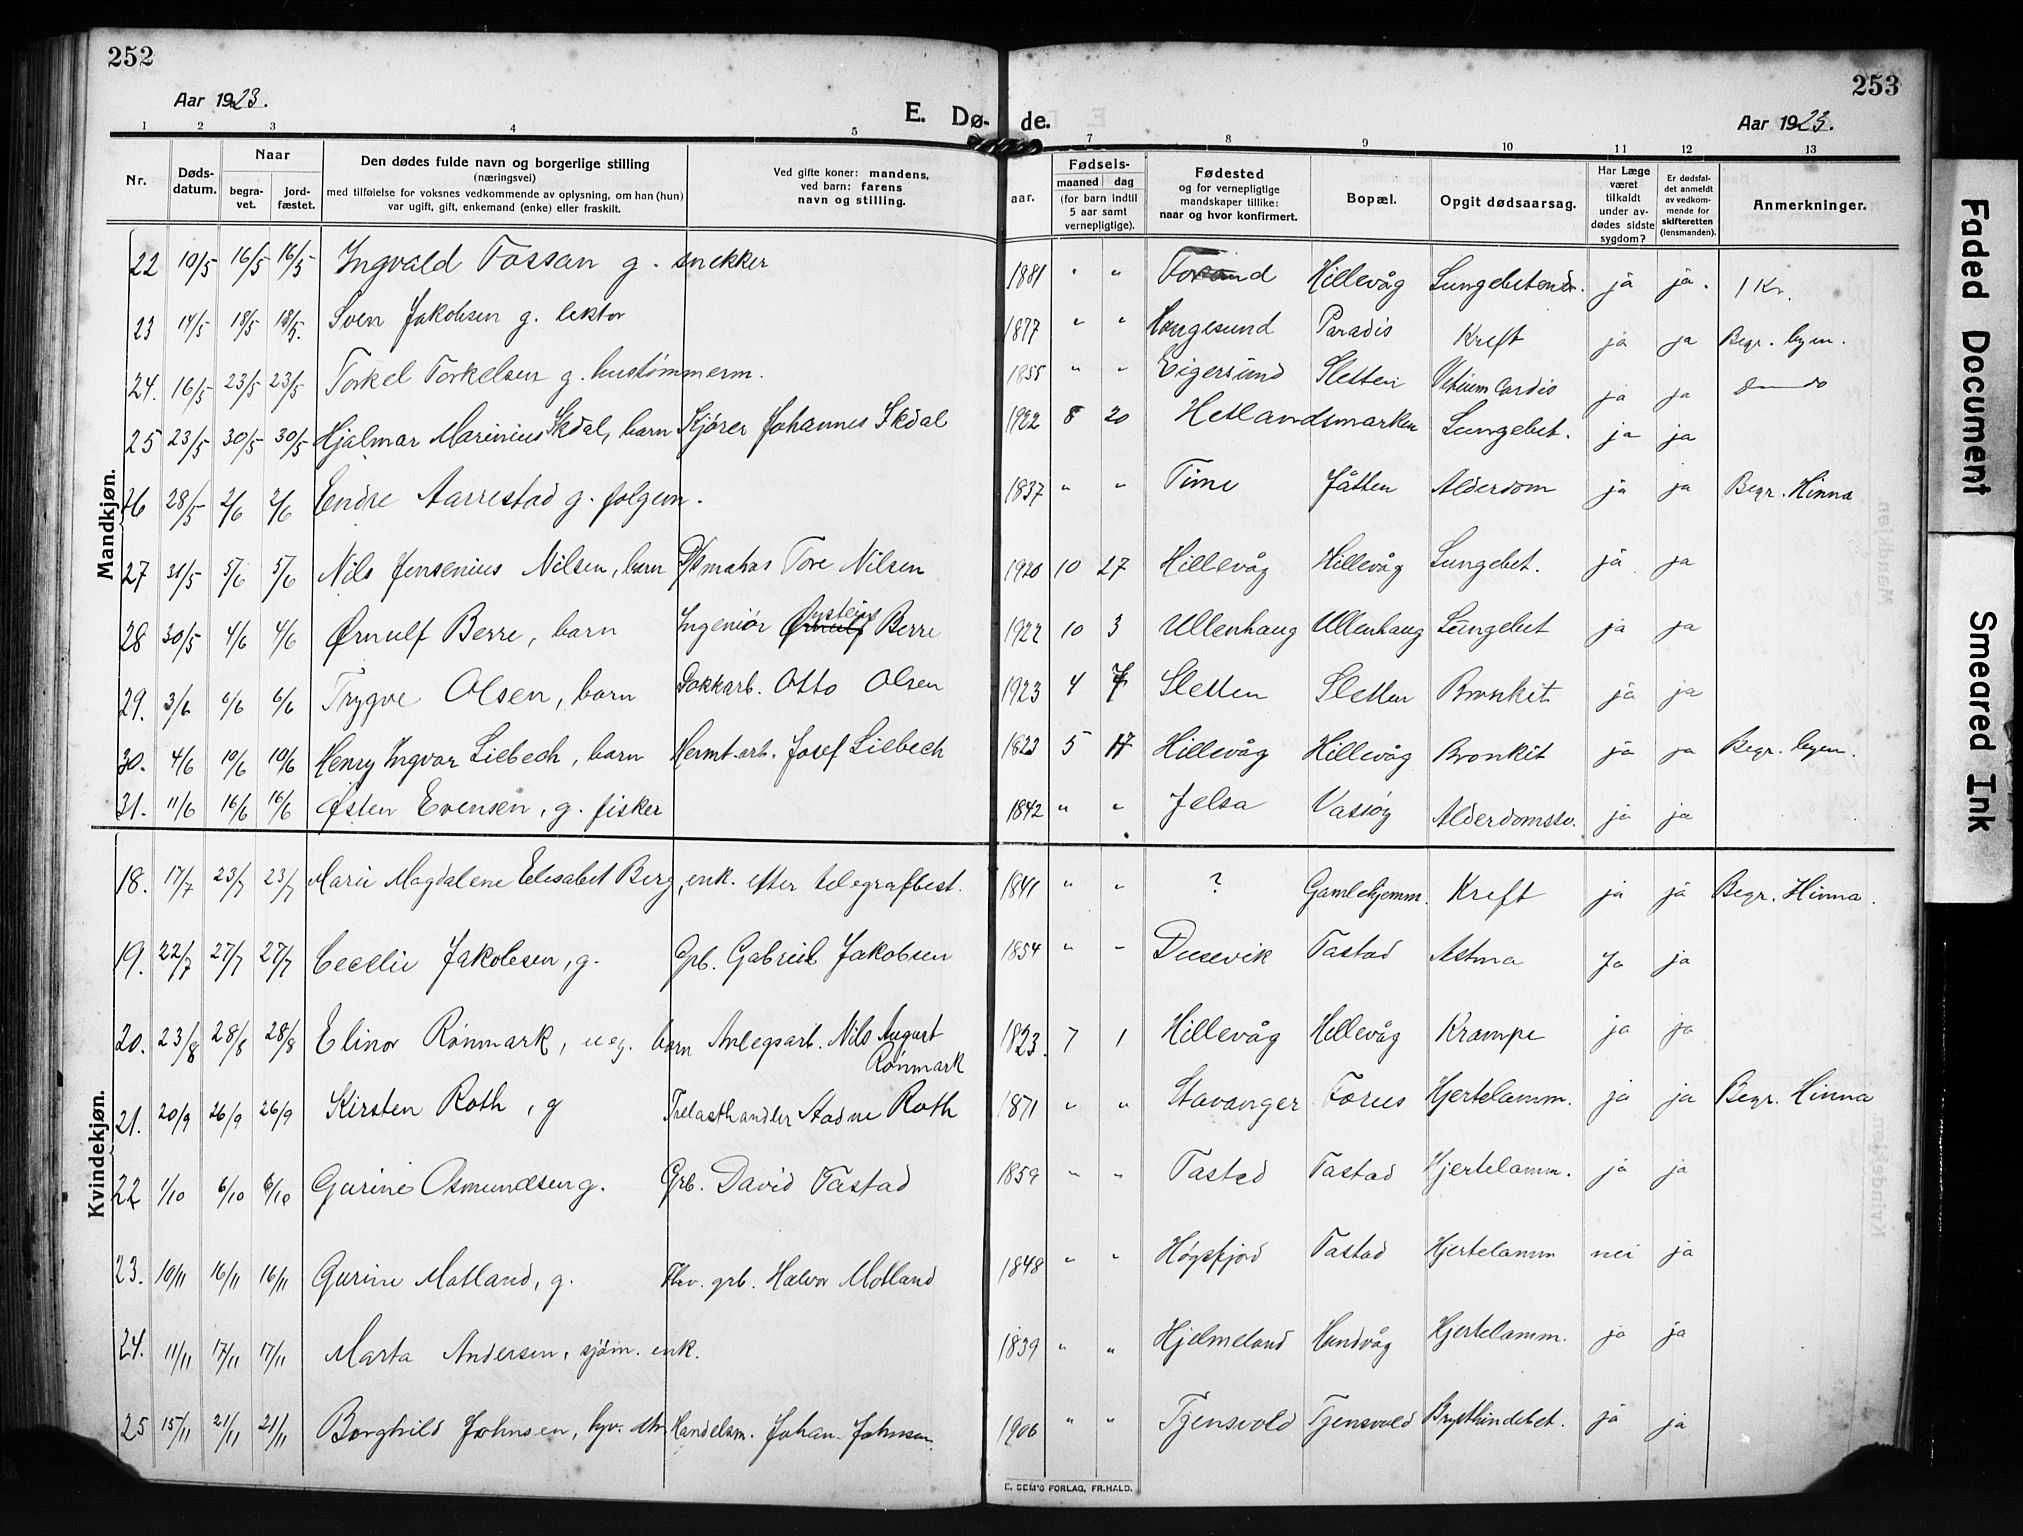 252
253
Aar 1923.
E. Dø- de.
Aar 1923.
1 2 3 4 5 7 8 9 10 11 12 13
Nr.
Døds-
datum.
Naar
begra-
vet.
jord-
fæstet.
Den dødes fulde navn og borgerlige stilling
(næringsvei)
med tilføielse for voksnes vedkommende av oplysning, om han (hun)
var ugift, gift, enkemand (enke) eller fraskilt.
Ved gifte koner: mandens,
ved barn: farens
navn og stilling.
Fødsels-
aar.
maaned dag
(for barn indtil
5 aar samt
vernepligtige).
Fødested
og for vernepligtige
mandskaper tillike:
naar og hvor konfirmert.
Bopæl.
Opgit dødsaarsag.
Har Læge
været
tilkaldt
under av-
dødes sidste
sygdom?
Er dødsfal-
det anmeldt
av vedkom-
mende for
skifteretten
(lensmanden).
Anmerkninger.
Mandkjøn.
22 10/5 16/5 16/5 Ingvald Fossan g. snekker 1881 " " Forsand Hillevåg Lungebetændr. ja ja. 1 Kr.
23 14/5 18/5 18/5. Sven Jakobsen g. lektor 1877 " " Haugesund Paradis Kreft ja ja Begr. byen.
24. 16/5 23/5 23/5 Torkel Torkelsen g. hustømmerm. 1855 " " Eigersund Sletten Vitium Cordis ja ja do
25 23/5 30/5 30/5 Hjalmar Marinius Skdal, barn Skjører Johannes Skdal 1922 8 20 Hetlandsmarken Lungebet. ja ja
26 28/5 2/6 2/6 Endre Aarrestad g. folgem. 1837 " " Time Jåtten Alderdom ja ja Begr. Hinna
27 31/5 5/6 5/6 Nils Jensenius Nilsen, barn D/S matros Tore Nilsen 1920 10 27 Hillevåg Hillevåg Lungebet. ja ja
28 30/5 4/6 4/6 Ørnulf Berre, barn Ingeniør Øysteins Berre 1922 10 3 Ullenhaug Ullenhaug Lungebet ja ja
29. 3/6 6/6 6/6 Trygve Olsen, barn Dokkarb. Otto Olsen 1923 4 7 Sletten Sletten Bronkit ja ja
30. 4/6 10/6 10/6 Henry Ingvar Liebech, barn Hermt. arb. Josef Liebech 1823 5 17 Hillevåg Hillevåg Bronkit ja ja Begr. byen.
31. 11/6 16/6 16/6 Østen Evensen, g. fisker 1842 " " Jelsa Vasøy Alderdomssv. ja ja
Kvindekjøn.
18. 17/7 23/7 23/7 Marie Magdalene Elesabet Berg, enk. efter telegrafbest. 1841 " " ? Gamlehjemm. Kreft ja ja Begr. Hinna.
19. 22/7 27/7 27/7 Cecelie Jakobsen, g. Gpb. Gabriel Jakobsen 1854 " " Dusevik Tastad Astma Ja ja
20. 23/8 28/8 28/8 Elinor Rønmark, ueg. barn Anlegsarb. Nils August 1823. 7 1 Hillevåg Hillevåg Krampe ja ja
Rønmark
21. 20/9 26/9 26/9 Kirsten Roth, g Trelasthandler Stadne Roth 1871 " " Stavanger Forus Hjertelamm. ja ja Begr. Hinna
22 1/10 6/10 6/10 Gurine Osmundsen g. Grb. David Tastad 1859 " " Tastad Tastad Hjertelamm. ja ja
23. 10/11 16/11 16/11 Gurine Motland, g. Fhv. grb. Halvor Motland 1848 " " Høgsfjord Tastad Hjertelamm nei ja
24. 11/11 17/11 17/11 Marta Andersen, sjøm. enk. 1839 " " Hjelmeland Hundvåg Hjertelamm. ja ja
25 15/11 21/11 21/11 Borghild Johnsen, hjv. dtr. Handelsm. Johan Johnsen 1906 " " Tjensvold Tjensvold Brysthindebet. ja ja
E. SEM'S FORLAG, FR.HALD.
Faded Document
Smeared Ink